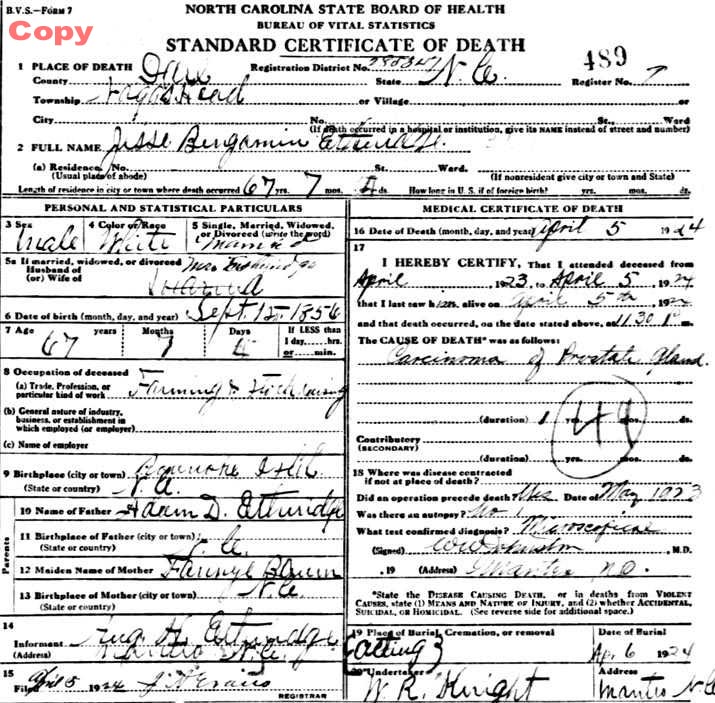 B.V.S.—FORM 7
Copy
NORTH CAROLINA STATE BOARD OF HEALTH
BUREAU OF VITAL STATISTICS
STANDARD CERTIFICATE OF DEATH
489
1 PLACE OF DEATH
Registration District No.
County Dare State N. C. Register No. 7
Township Nags Head or Village or
City No. St., Ward
(If death occurred in a hospital or institution, give its NAME instead of street and number)
2 FULL NAME Jesse Benjamin Etheridge
(a) Residence, No. St. Ward.
(Usual place of abode) (If nonresident give city or town and State)
Length of residence in city or town where death occurred 67 yrs. 7 mos. ds. How long in U.S. if of foreign birth? yrs. mos. ds.
PERSONAL AND STATISTICAL PARTICULARS
3 Sex 4 Color or Race 5 Single, Married, Widowed, or Divorced (write the word)
Male White Married
5a If married, widowed, or divorced
Husband of
(or) Wife of
Mrs
6 Date of birth (month, day, and year) Sept. 15 1856
7 Age years Months Days If LESS than
1 day, ......hrs.
or ......min.
67 7
8 Occupation of deceased
(a) Trade, Profession, or particular kind of work Farming &
(b) General nature of industry, business, or establishment in which employed (or employer)
(c) Name of employer
9 Birthplace (city or town)
(State or country) N. C.
Parents
10 Name of Father Adam D. Etheridge
11 Birthplace of Father (city or town)
(State or country) N. C.
12 Maiden Name of Mother Fannye Baum
13 Birthplace of Mother (city or town)
(State or country) N. C.
14
Informant Aug. H. Etheridge
(Address) Manteo N. C.
15
Filed 5 1924
REGISTRAR
MEDICAL CERTIFICATE OF DEATH
16 Date of Death (month, day, and year) April 5 1924
17
I HEREBY CERTIFY, That I attended deceased from
April 1923, to April 5, 1924
that I last saw h alive on April 5th 1924
and that death occurred, on the date stated above, at 11.30 m.
The CAUSE OF DEATH* was as follows:
Carcinoma of Prostate Gland.
(duration) 1 yrs. mos. ds.
49
Contributory
(SECONDARY)
(duration) yrs. mos. ds.
18 Where was disease contracted
if not at place of death?
Did an operation precede death? Yes Date of May 1923
Was there an autopsy? No
What test confirmed diagnosis? Microscopical
(Signed) Johnston, M.D.
, 19 (Address) Manteo N.C.
*State the DISEASE CAUSING DEATH, or in deaths from VIOLENT
CAUSES, state (1) MEANS AND NATURE OF INJURY, and (2) whether ACCIDENTAL,
SUICIDAL, OR HOMICIDAL. (See reverse side for additional space.)
19 Place of Burial, Cremation, or removal Date of Burial
Ap. 6 1924
20 Undertaker Address
W. R. Knight Manteo N C